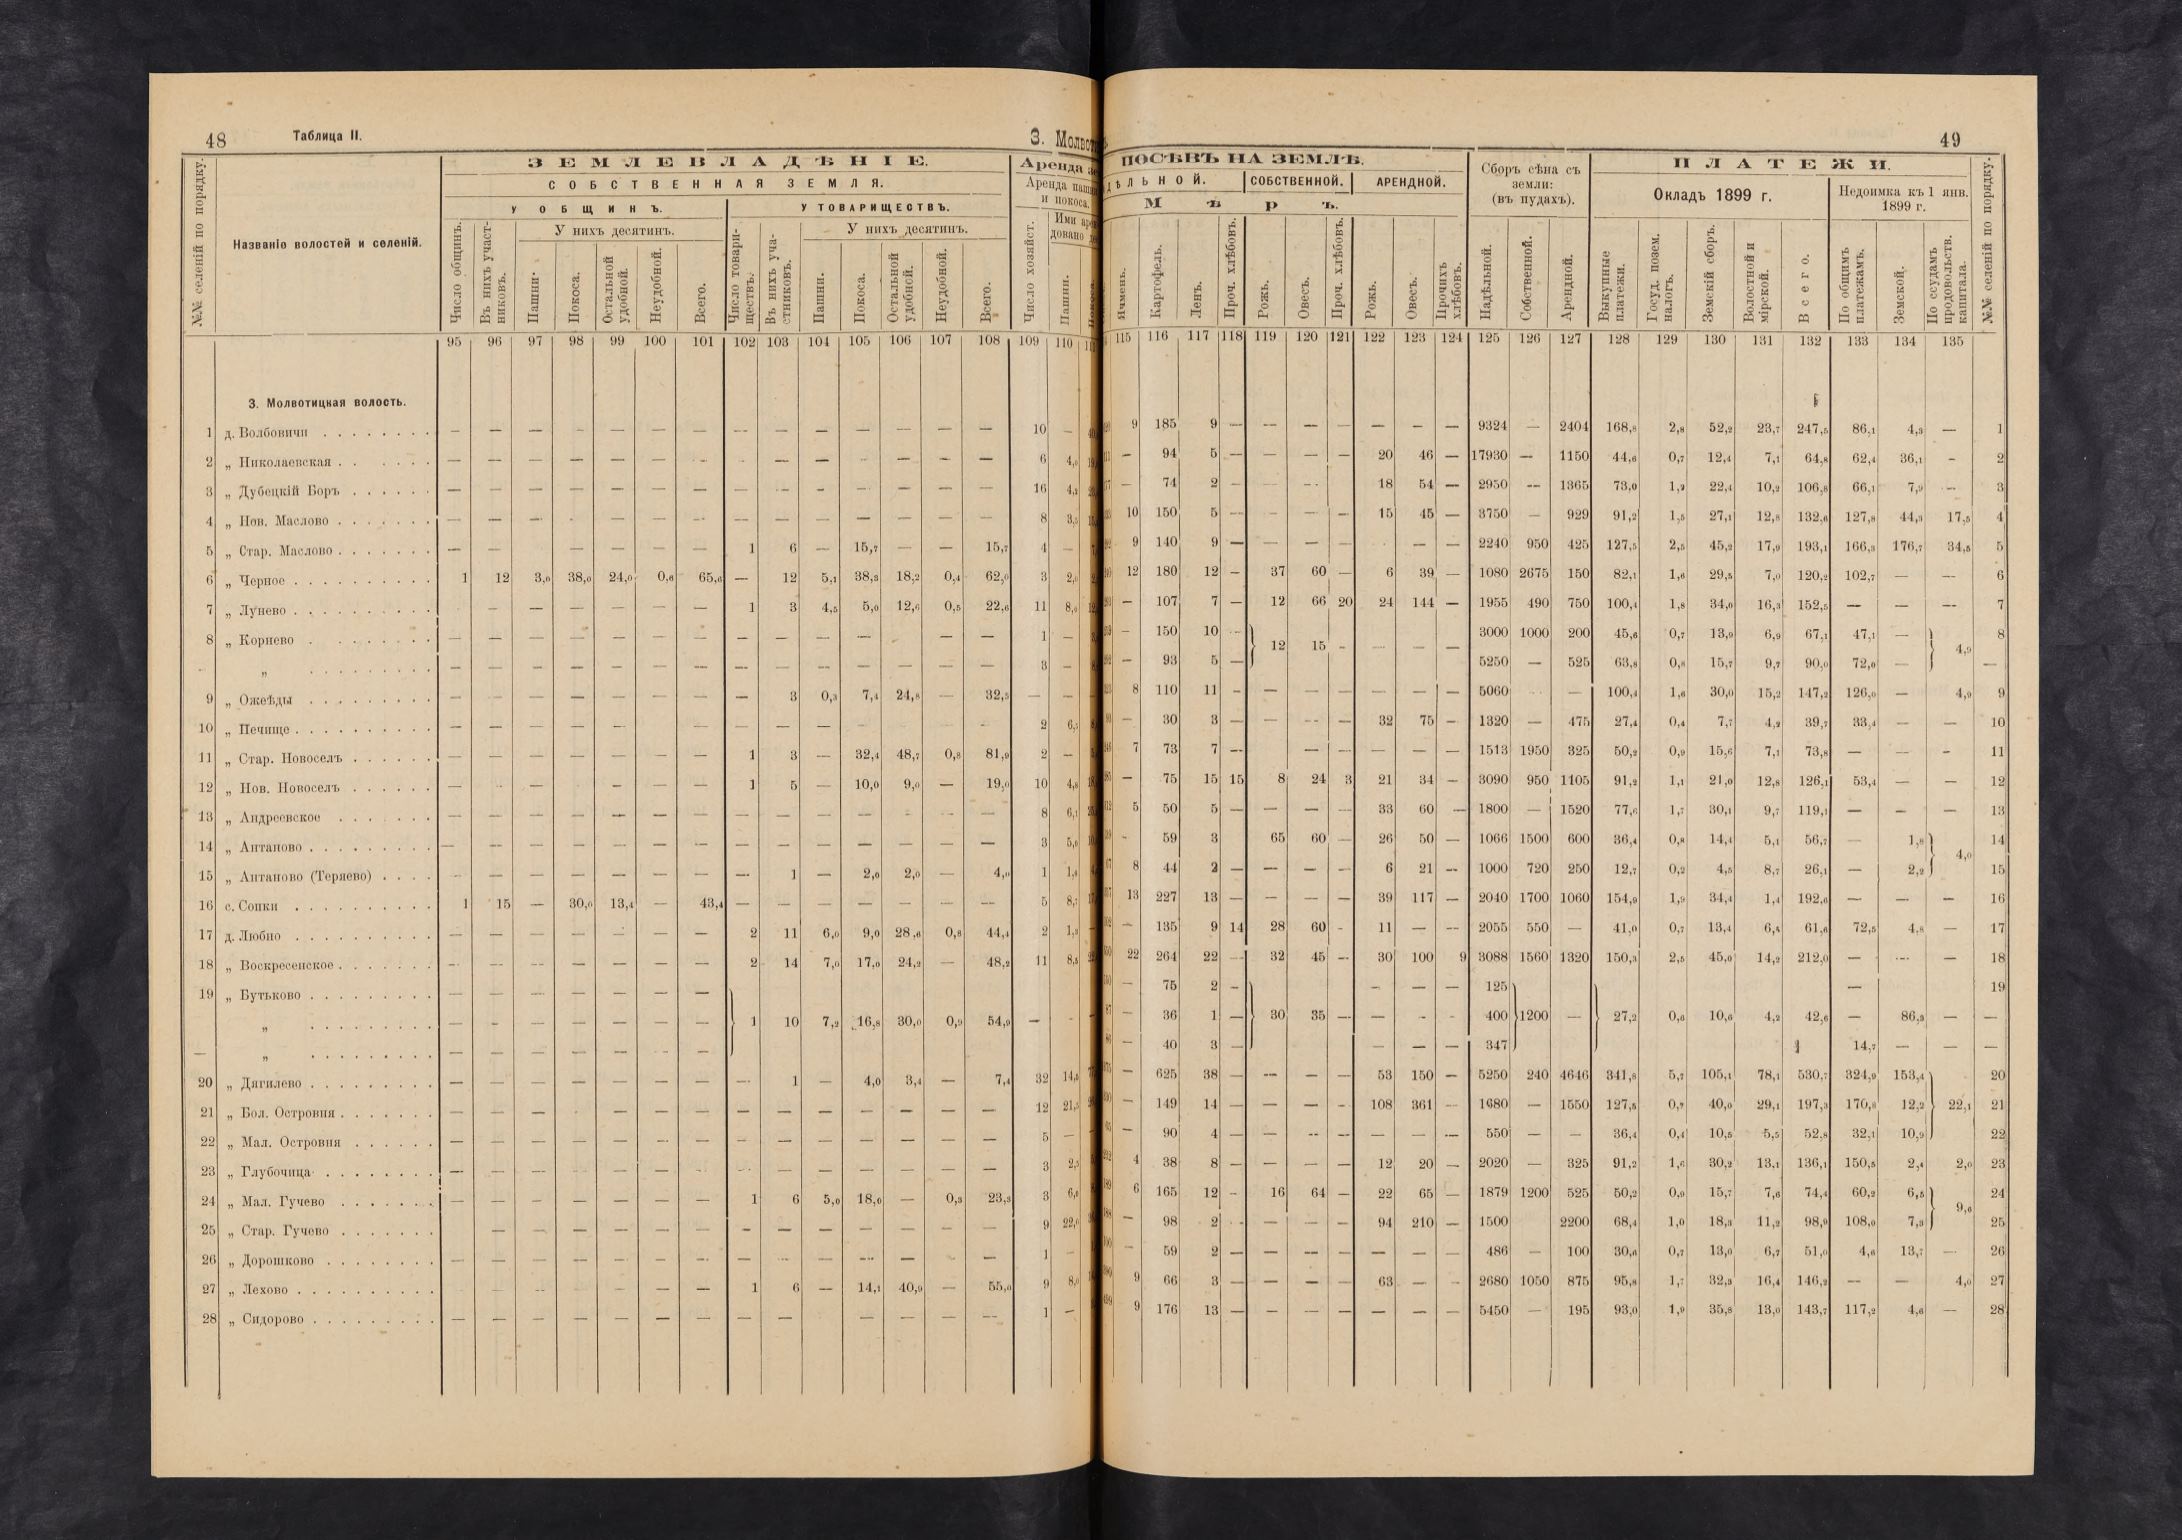 48 Таблица II. 3. Молвот
№№ селеній по порядку.
Названіе волостей и селеній.
ЗЕМЛЕВЛАДѢНІЕ.
СОБСТВЕННАЯ ЗЕМЛЯ.
У ОБЩИНЪ.
Число общинъ.
Въ нихъ участниковъ.
У нихъ десятинъ.
Пашни.
Покоса.
Остальной удобной.
Неудобной.
Всего.
У ТОВАРИЩЕСТВЪ.
Число товариществъ.
Въ нихъ участниковъ.
У нихъ десятинъ.
Пашни.
Покоса.
Остальной удобной.
Неудобной.
Всего.
Аренда
Аренда
и покоса.
Число хозяйст.
Ими
Пашни.
95 96 97 98 99 100 101 102 103 104 105 106 107 108 109 110
3. Молвотицкая волость.
1 д. Волбовичи — — — — — — — — — — — — — — 10 —
2 „ Николаевская — — — — — — — — — — — — — — 6 4,0
3 „ Дубецкій Боръ — — — — — — — — — — — — — — 16
4 „ Нов. Маслово — — — — — — — — — — — — — — 8
5 „ Стар. Маслово — — — — — — 1 6 — 15,7 — — 15,7 4 —
6 „ Черное 1 12 3,0 38,0 24,0 0,6 65,6 — 12 5,1 38,3 18,2 0,4 62,0 3
7 „ Лунево — — — — — — 1 3 4,5 5,0 12,6 0,5 22,6 11
8 „ Корнево — — — — — — — — — — — — — 1 —
„ — — — — — — — — — — — — — — 3 —
9 „ Ожеѣды — — — — — — — — 3 0,3 7,4 24,8 — 32,5 — —
10 „ Печище — — — — — — — — — — — — — — 2
11 „ Стар. Новоселъ — — — — — — — 1 3 — 32,4 48,7 0,8 81,9 2 —
12 „ Нов. Новоселъ — — — — — — — 1 5 — 10,0 9,0 — 19,0 10 4,8
13 „ Андреевское — — — — — — — — — — — — — — 8 6,1
14 „ Антаново — — — — — — — — — — — — — — 3 5,0
15 „ Антаново (Теряево) — — — — — — — — 1 — 2,0 2,0 — 4,0 1
16 с. Сопки 1 15 — 30,0 13,4 — 43,4 — — — — — — — 5
17 д. Любно — — — — — — — 2 11 6,0 9,0 28,6 0,8 44,4 2
18 „ Воскресенское — — — — — — — 2 14 7,0 17,0 24,2 — 48,2 11 8,5
19 „ Бутьково — — — — — — —
„ — — — — — — — } 1 10 7,2 16,8 30,0 0,9 54,9 — —
— „ — — — — — — —
20 „ Дягилево — — — — — — — — 1 — 4,0 3,4 — 7,4 32
21 „ Бол. Островня — — — — — — — — — — — — — — 12
22 „ Мал. Островня — — — — — — — — — — — — — — 5 —
23 „ Глубочица — — — — — — — — — — — — — — 3
24 „ Мал. Гучево — — — — — — — 1 6 5,0 18,0 — 0,3 23,3 3
25 „ Стар. Гучево — — — — — — — — — — — — — 9 22,0
26 „ Дорошково — — — — — — — — — — — — — — 1 —
27 „ Лехово — — — — — — 1 6 — 14,1 40,9 — 55,0 9
28 „ Сидорово — — — — — — — — — — — — — — 1 —
49
ПОСѢВЪ НА ЗЕМЛѢ.
ДѢЛЬНОЙ. СОБСТВЕННОЙ. АРЕНДНОЙ.
Мѣръ.
Ячмень.
Картофель.
Ленъ.
Проч. хлѣбовъ.
Рожь.
Овесъ.
Проч. хлѣбовъ.
Рожь.
Овесъ.
Прочихъ хлѣбовъ.
Сборъ сѣна съ
земли:
(въ пудахъ).
Надѣльной.
Собственной.
Арендной.
ПЛАТЕЖИ.
Окладъ 1899 г.
Выкупные платежи.
Госуд. позем. налогъ.
Земскій сборъ.
Волостной и мірской.
Всего.
Недоимка къ 1 янв.
1899 г.
По общимъ платежамъ.
Земской.
По ссудамъ продовольств. капитала.
№№ селеній по порядку.
115 116 117 118 119 120 121 122 123 124 125 126 127 128 129 130 131 132 133 134 135
9 185 9 — — — — — — — 9324 — 2404 168,8 2,8 52,2 23,7 247,5 86,1 4,3 — 1
— 94 5 — — — — 20 46 — 17930 — 1150 44,6 0,7 12,4 7,1 64,8 62,4 36,1 — 2
— 74 2 — — — 18 54 — 2950 — 1365 73,0 1,2 22,4 10,2 106,8 66,1 7,9 — 3
10 150 5 — — — — 15 45 — 3750 — 929 91,2 1,5 27,1 12,8 132,6 127,8 44,3 17,5 4
9 140 9 — — — — — — — 2240 950 425 127,5 2,5 45,2 17,9 193,1 166,3 176,7 34,5 5
12 180 12 — 37 60 — 6 39 — 1080 2675 150 82,1 1,6 29,5 7,0 120,2 102,7 — — 6
— 107 7 — 12 66 20 24 144 — 1955 490 750 100,4 1,8 34,0 16,3 152,5 — — — 7
— 150 10 — } 12 15 — — — — 3000 1000 200 45,6 0,7 13,9 6,9 67,1 47,1 — } 4,9 8
— 93 5 — 5250 — 525 63,8 0,8 15,7 9,7 90,0 72,0 — —
8 110 11 — — — — — — — 5060 — — 100,4 1,6 30,0 15,2 147,2 126,0 — 4,9 9
— 30 3 — — — — 32 75 — 1320 — 475 27,4 0,4 7,7 4,2 39,7 33,4 — — 10
7 73 7 — — — — — — 1513 1950 325 50,2 0,9 15,6 7,1 73,8 — — — 11
— 75 15 15 8 24 3 21 34 — 3090 950 1105 91,2 1,1 21,0 12,8 126,1 53,4 — — 12
5 50 5 — — — — 33 60 — 1800 — 1520 77,6 1,7 30,1 9,7 119,1 — — — 13
— 59 3 — 65 60 — 26 50 — 1066 1500 600 36,4 0,8 14,4 5,1 56,7 — 1,8 } 4,0 14
8 44 2 — — — — 6 21 — 1000 720 250 12,7 0,2 4,5 8,7 26,1 — 2,2 15
13 227 13 — — — — 39 117 — 2040 1700 1060 154,9 1,9 34,4 1,4 192,6 — — — 16
— 135 9 14 28 60 — 11 — — 2055 550 — 41,0 0,7 13,4 6,5 61,6 72,5 4,8 — 17
22 264 22 — 32 45 — 30 100 9 3088 1560 1320 150,3 2,5 45,0 14,2 212,0 — — — 18
— 75 2 — — — — 125 — 19
— 36 1 — } 30 35 — — — — 400 } 1200 — } 27,2 0,6 10,6 4,2 42,6 — 86,3 — —
— 40 3 — — — — 347 14,7 — — —
— 625 38 — — — — 53 150 — 5250 240 4646 341,8 5,7 105,1 78,1 530,7 324,9 153,4 20
— 149 14 — — — — 108 361 — 1680 — 1550 127,5 0,7 40,0 29,1 197,3 170,8 12,2 } 22,1 21
— 90 4 — — — — — — — 550 — — 36,4 0,4 10,5 5,5 52,8 32,1 10,9 22
4 38 8 — — — — 12 20 — 2020 — 325 91,2 1,6 30,2 13,1 136,1 150,5 2,4 2,0 23
6 165 12 — 16 64 — 22 65 — 1879 1200 525 50,2 0,9 15,7 7,6 74,4 60,2 6,5 } 9,6 24
— 98 2 — — — — 94 210 — 1500 2200 68,4 1,0 18,3 11,2 98,9 108,0 7,3 25
— 59 2 — — — — — — — 486 — 100 30,6 0,7 13,0 6,7 51,0 4,6 13,7 — 26
9 66 3 — — — — 63 — — 2680 1050 875 95,8 1,7 32,3 16,4 146,2 — — 4,0 27
9 176 13 — — — — — — — 5450 — 195 93,0 1,9 35,8 13,0 143,7 117,2 4,6 — 28